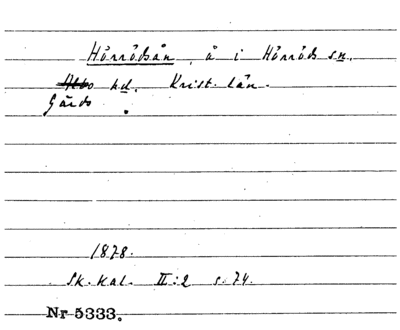 Hörrödsån, å i Hörröds sn.
Albo hd. Krist. län.
Gärds
1878.
Sk. kal. II:2 s. 74.
Nr 5333.